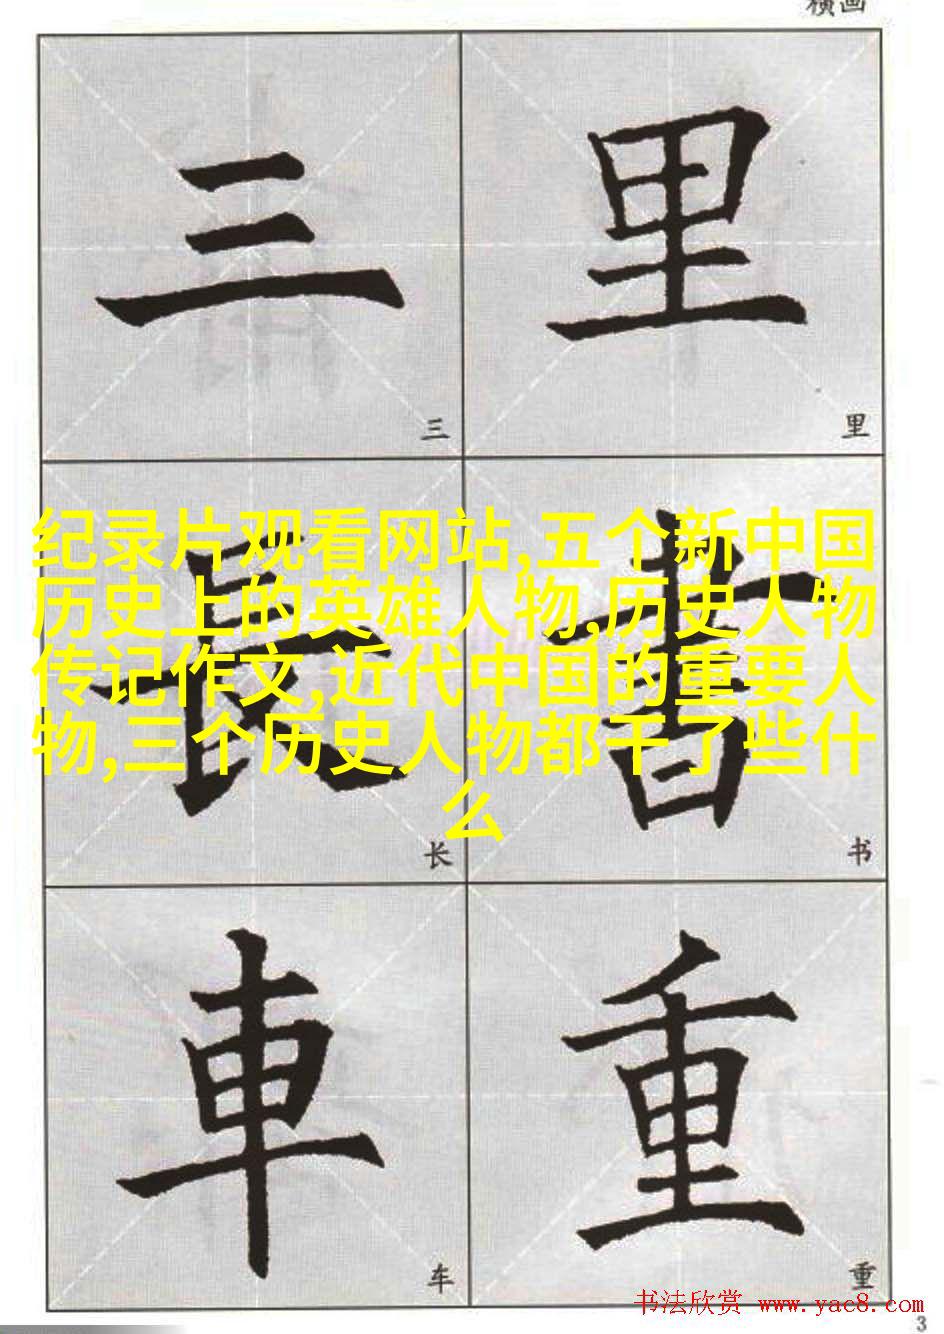 横画
三 里
三 里
纪录片观看网站,五个新中国
历史上的英雄人物,历史人物
传记作文,近代中国的重要人
物,三个历史人物都干了些什
么
長 書
长 书
車 重
车 重
书法欣赏 www.yac8.com
3